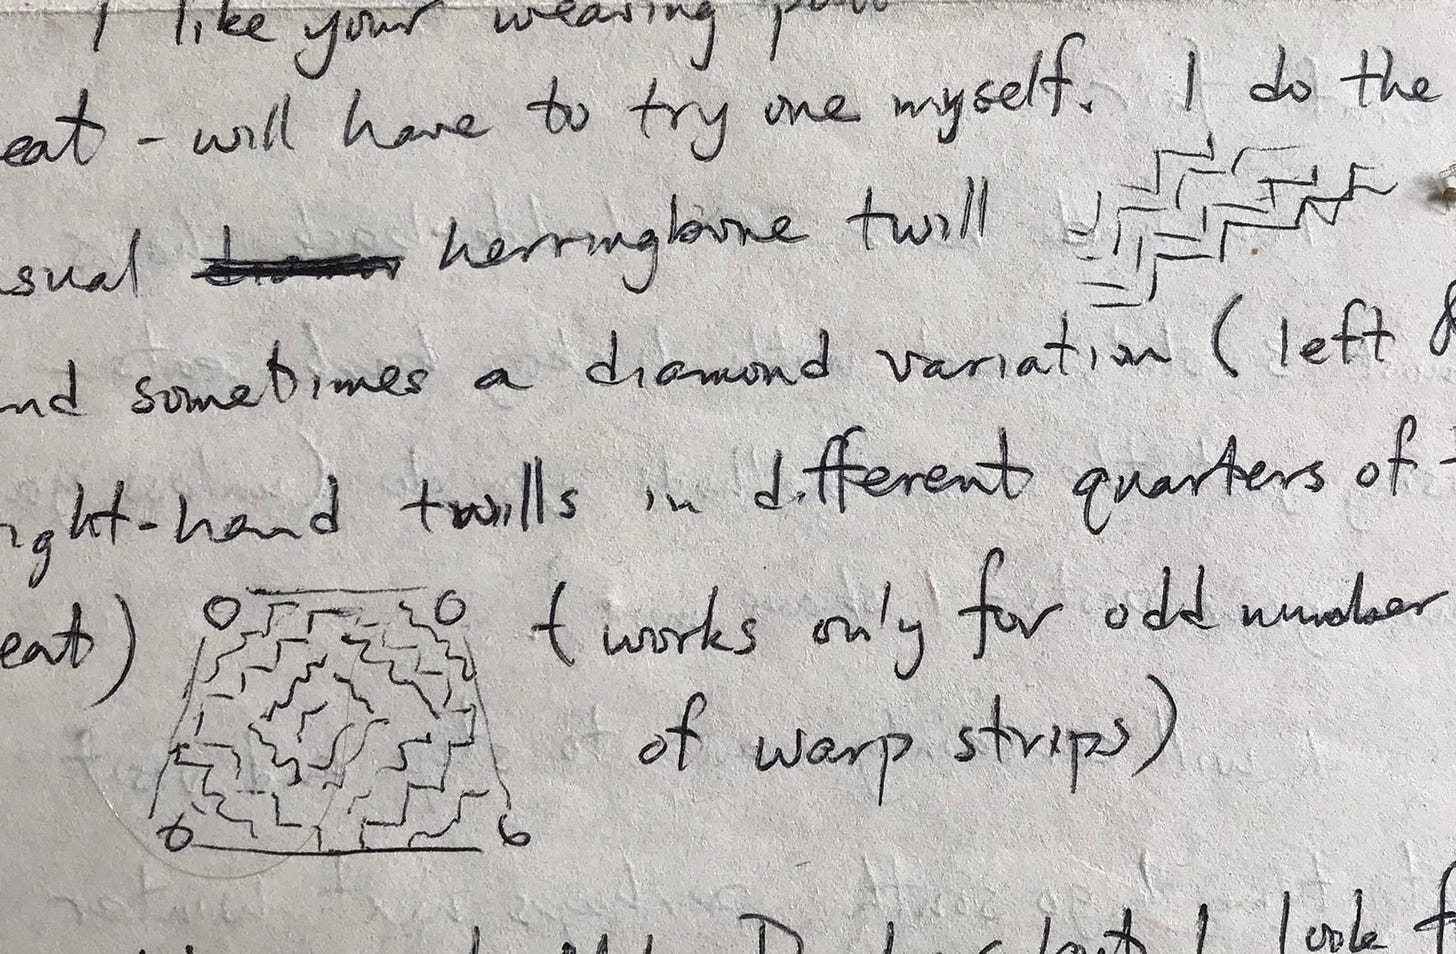 I like your weaving
eat - will have to try one myself. I do the
sual herringbone twill
nd sometimes a diamond variation (left &
ight-hand twills in different quarters of t
eat) (works only for odd number
of warp strips)
but I look f